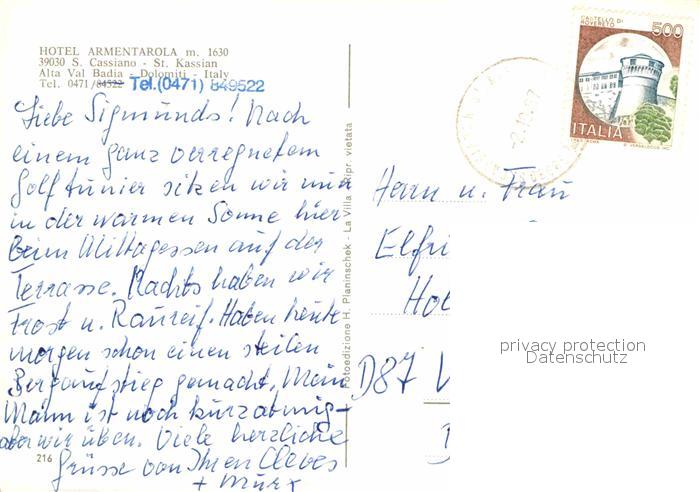 HOTEL ARMENTAROLA m. 1630
39030 S. Cassiano - St. Kassian
Alta Val Badia - Dolomiti - Italy
Tel. 0471/84522 Tel.(0471) 849522
Liebe Sigmunds! Nach
einem ganz verregnetem
Golfturnier sitzen wir nun
in der warmen Sonne hier
beim Mittagessen auf der
Terrasse. Nachts haben wir
Frost u. Raureif. Haben heute
morgen schon einen steilen
Bergaufstieg gemacht, Mein
Mann ist noch kurzatmig -
aber wir üben. Viele herzliche
Grüsse von Ihren Cleves
+ Murx
216
Fotoedizione H. Planinschek - La Villa - Ripr. vietata
CASTELLO DI
ROVERETO
500
ITALIA
Herrn u. Frau
Elfri
Hol
D87 W
privacy protection
Datenschutz